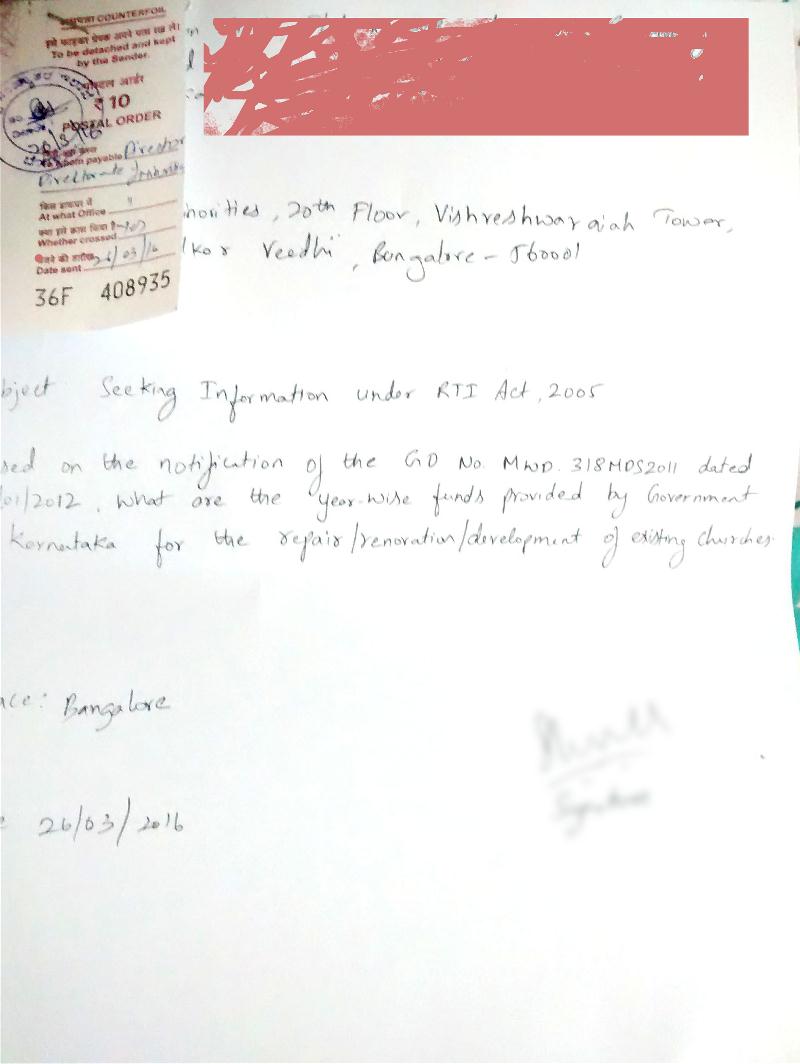 COUNTERFOIL
इसे फाड़कर प्रेषक अपने पास रख ले।
To be detached and kept
by the Sender.
पोस्टल आर्डर
₹ 10
POSTAL ORDER
payable Director
Directorate
At what Office
Whether crossed
Date sent 26/03/16
36F 408935
norities, 20th Floor, Vishreshwaraiah Tower,
Veedhi, Bangalore - 560001
bject Seeking Information under RTI Act, 2005
sed on the notification of the GO No. MWD. 318MDS2011 dated
/01/2012, What are the year-wise funds provided by Government
Karnataka for the repair/renovation/development of existing churches.
ace: Bangalore
26/03/2016